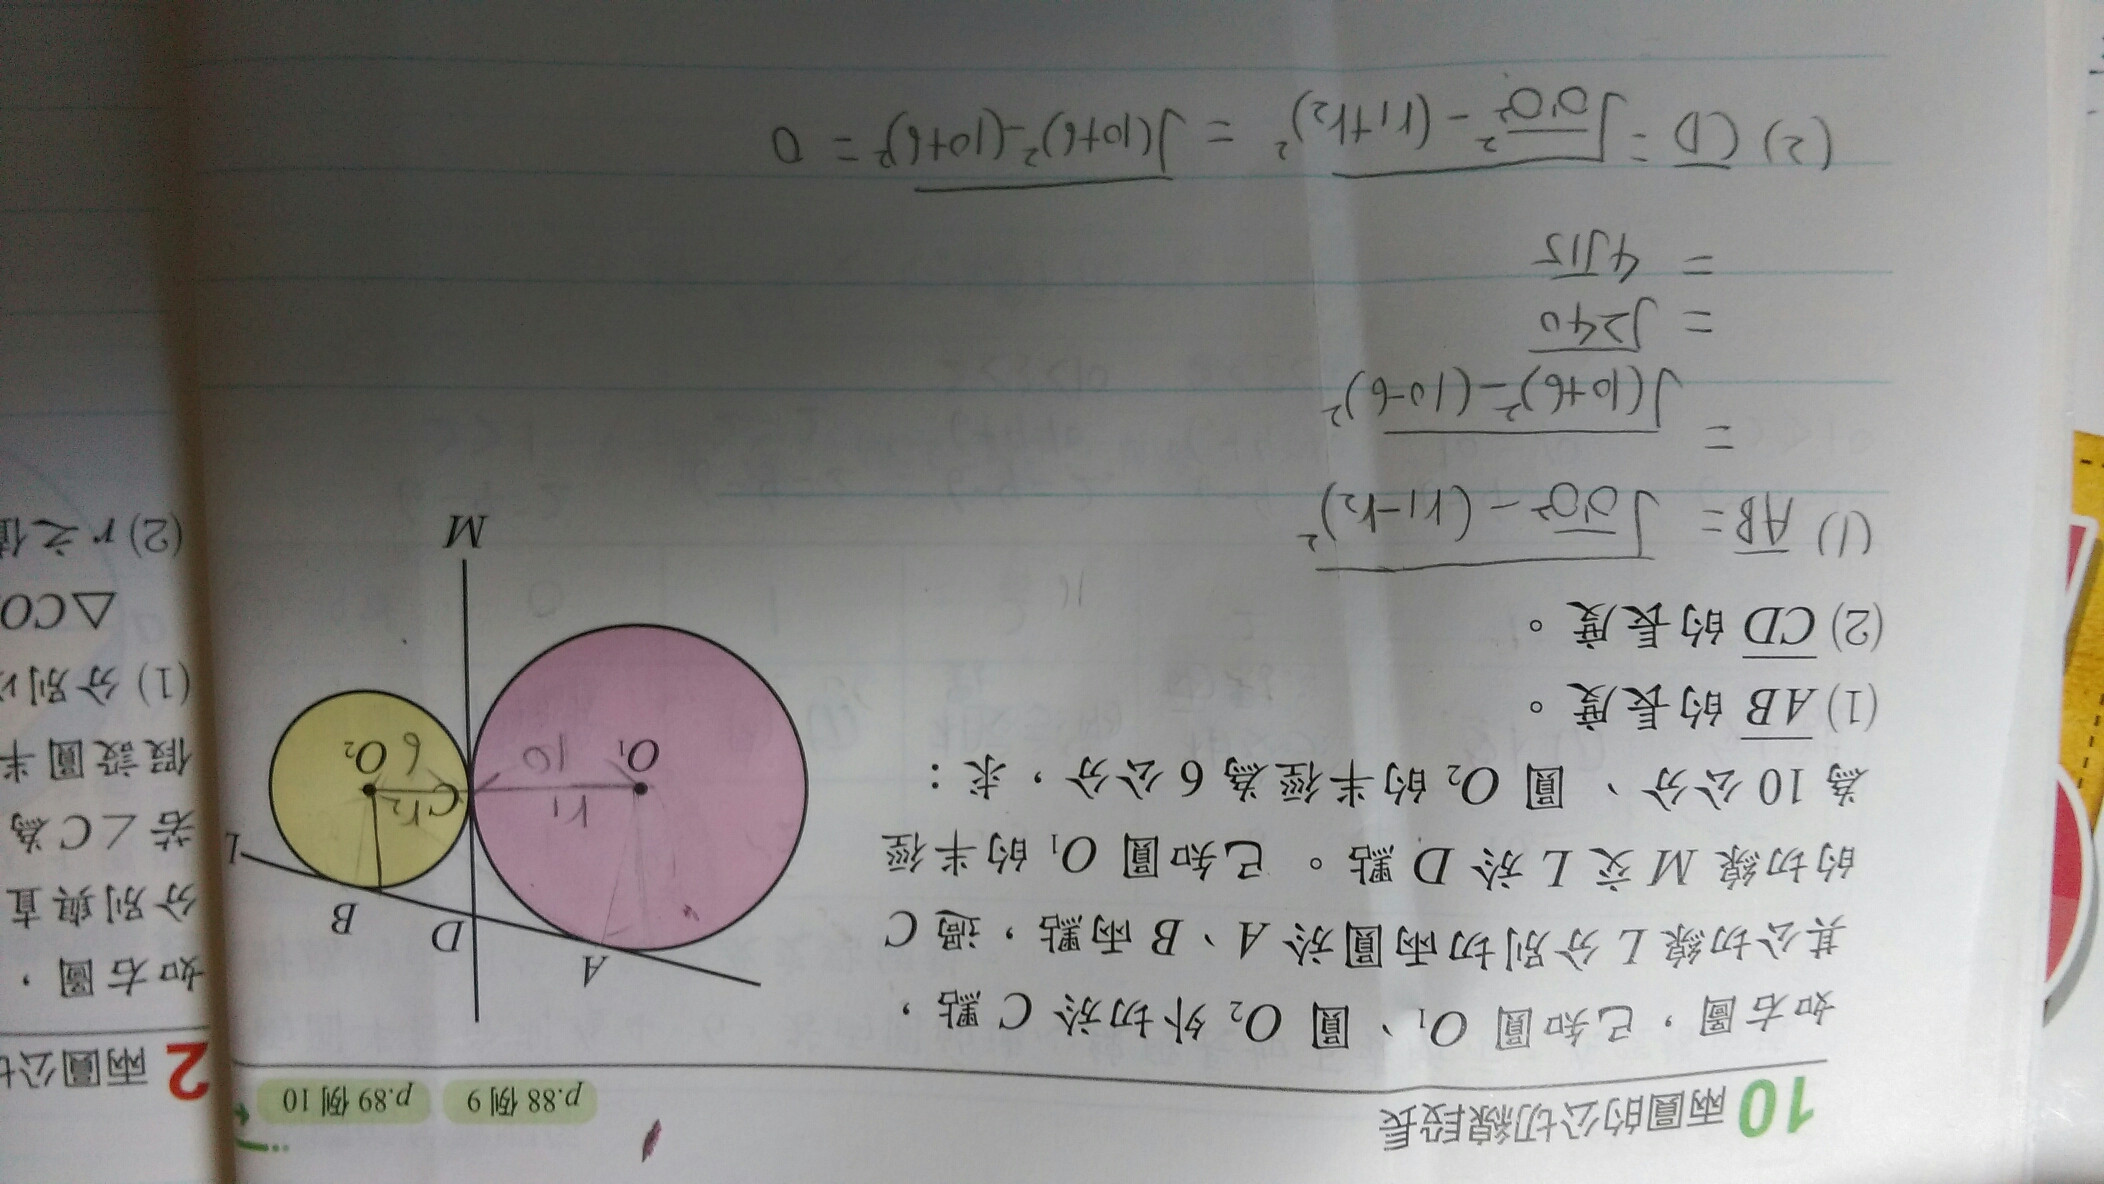 10 兩圓的公切線段長
p.88 例 9 p.89 例 10
如右圖,已知圓 O₁、圓 O₂ 外切於 C 點,
其公切線 L 分別切兩圓於 A、B 兩點,過 C
的切線 M 交 L 於 D 點。已知圓 O₁ 的半徑
為 10 公分、圓 O₂ 的半徑為 6 公分,求:
(1) AB 的長度。
(2) CD 的長度。
A
D
B
L
O₁
r₁
10
C
r₂
6
O₂
M
(1) AB = √OO² - (r1-r2)²
= √(10+6)²-(10-6)²
= √240
= 4√15
(2) CD = √OO² - (r1+r2)² = √(10+6)²-(10+6)² = 0
2 兩圓公切
如右圖,
分別與直
若∠C為
假設圓半
(1) 分別以
△CO
(2) r 之值